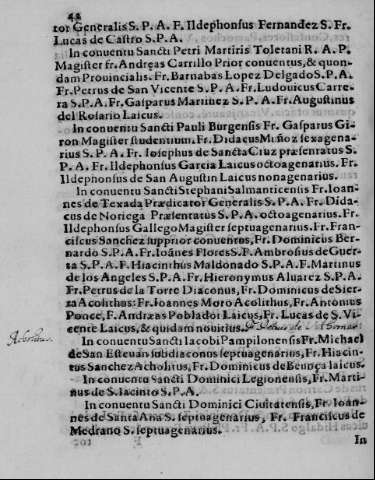 42
tor Generalis S. P. A. F. Ildephonsus Fernandez S. Fr.
Lucas de Castro S.P.A.
In conuentu Sancti Petri Martiris Toletani R. A. P.
Magister fr. Andreas Carrillo Prior conuentus, & quon-
dam Prouincialis. Fr. Barnabas Lopez Delgado S.P.A.
Fr. Petrus de San Vicente S.P.A. Fr. Ludouicus Carre-
ra S.P.A. Fr. Gasparus Martinez S.P.A. Fr. Augustinus
del Rosario Laicus.
In conuentu Sancti Pauli Burgensis Fr. Gasparus Gi-
ron Magister studentium. Fr. Didacus Muñoz sexagena-
rius S. P. A. Fr. Iosephus de Sancta Cruz præsentatus S.
P. A. Fr. Ildephonsus Garcia Laicus octoagenarius. Fr.
Ildephonsus de San Augustin Laicus nonagenarius.
In conuentu Sancti Stephani Salmanticensis Fr. Ioan-
nes de Texada Prædicator Generalis S. P. A. Fr. Dida-
cus de Noriega Præsentatus S. P. A. octoagenarius. Fr.
Ildephonsus Gallego Magister septuagenarius. Fr. Fran-
ciscus Sanchez supprior conuentus, Fr. Dominicus Ber-
nardo S.P.A. Fr. Ioãnes Flores S.F. Ambrosius de Guer-
ta S.P.A.F. Hiacinthus Maldonado S.P.A.F. Martinus
de los Angeles S.P.A. Fr. Hieronymus Aluarez S.P.A.
Fr. Petrus de la Torre Diaconus, Fr. Dominicus de Sier-
ra Acolithus: Fr. Ioannes Moro Acolithus, Fr. Antonius
Ponce, F. Andreas Poblador Laicus, Fr. Lucas de S. Vi-
cente Laicus, & quidam nouitius.
In conuentu Sancti Iacobi Pampilonensis Fr. Michael
de San Esteuan subdiaconus septuagenarius, Fr. Hiacin-
tus Sanchez Acholitus, Fr. Dominicus de Beunça laicus.
In conuentu Sancti Dominici Legionensis, Fr. Marti-
nus de S. Iacinto S.P.A.
In conuentu Sancti Dominici Ciuitatensis, Fr. Ioan-
nes de Santa Ana S. septuagenarius, Fr. Franciscus de
Medrano S. septuagenarius.
In